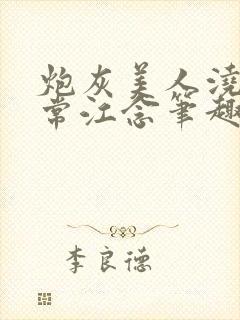 炮灰美人浇
常江念笔趣
李良德